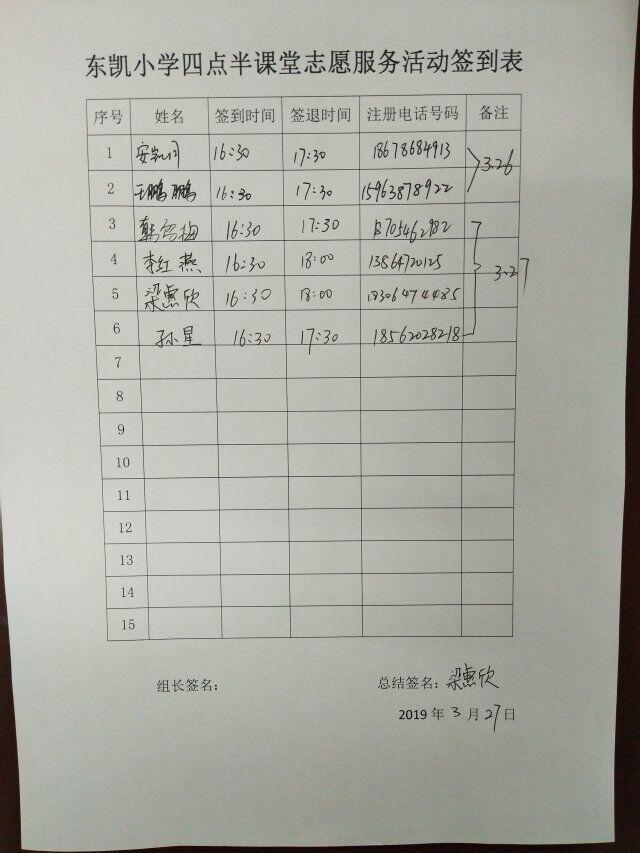 东凯小学四点半课堂志愿服务活动签到表
序号 姓名 签到时间 签退时间 注册电话号码 备注
1 16:30 17:30 18678684913 3.26
2 王鹏鹏 16:30 17:30 15963878922
3 16:30 17:30 18705462982 3.27
4 李红燕 16:30 18:00 13864720125
5 梁惠欣 16:30 18:00 18306474485
6 孙星 16:30 17:30 18562028218
7
8
9
10
11
12
13
14
15
组长签名： 总结签名：梁惠欣
2019 年 3 月 27 日